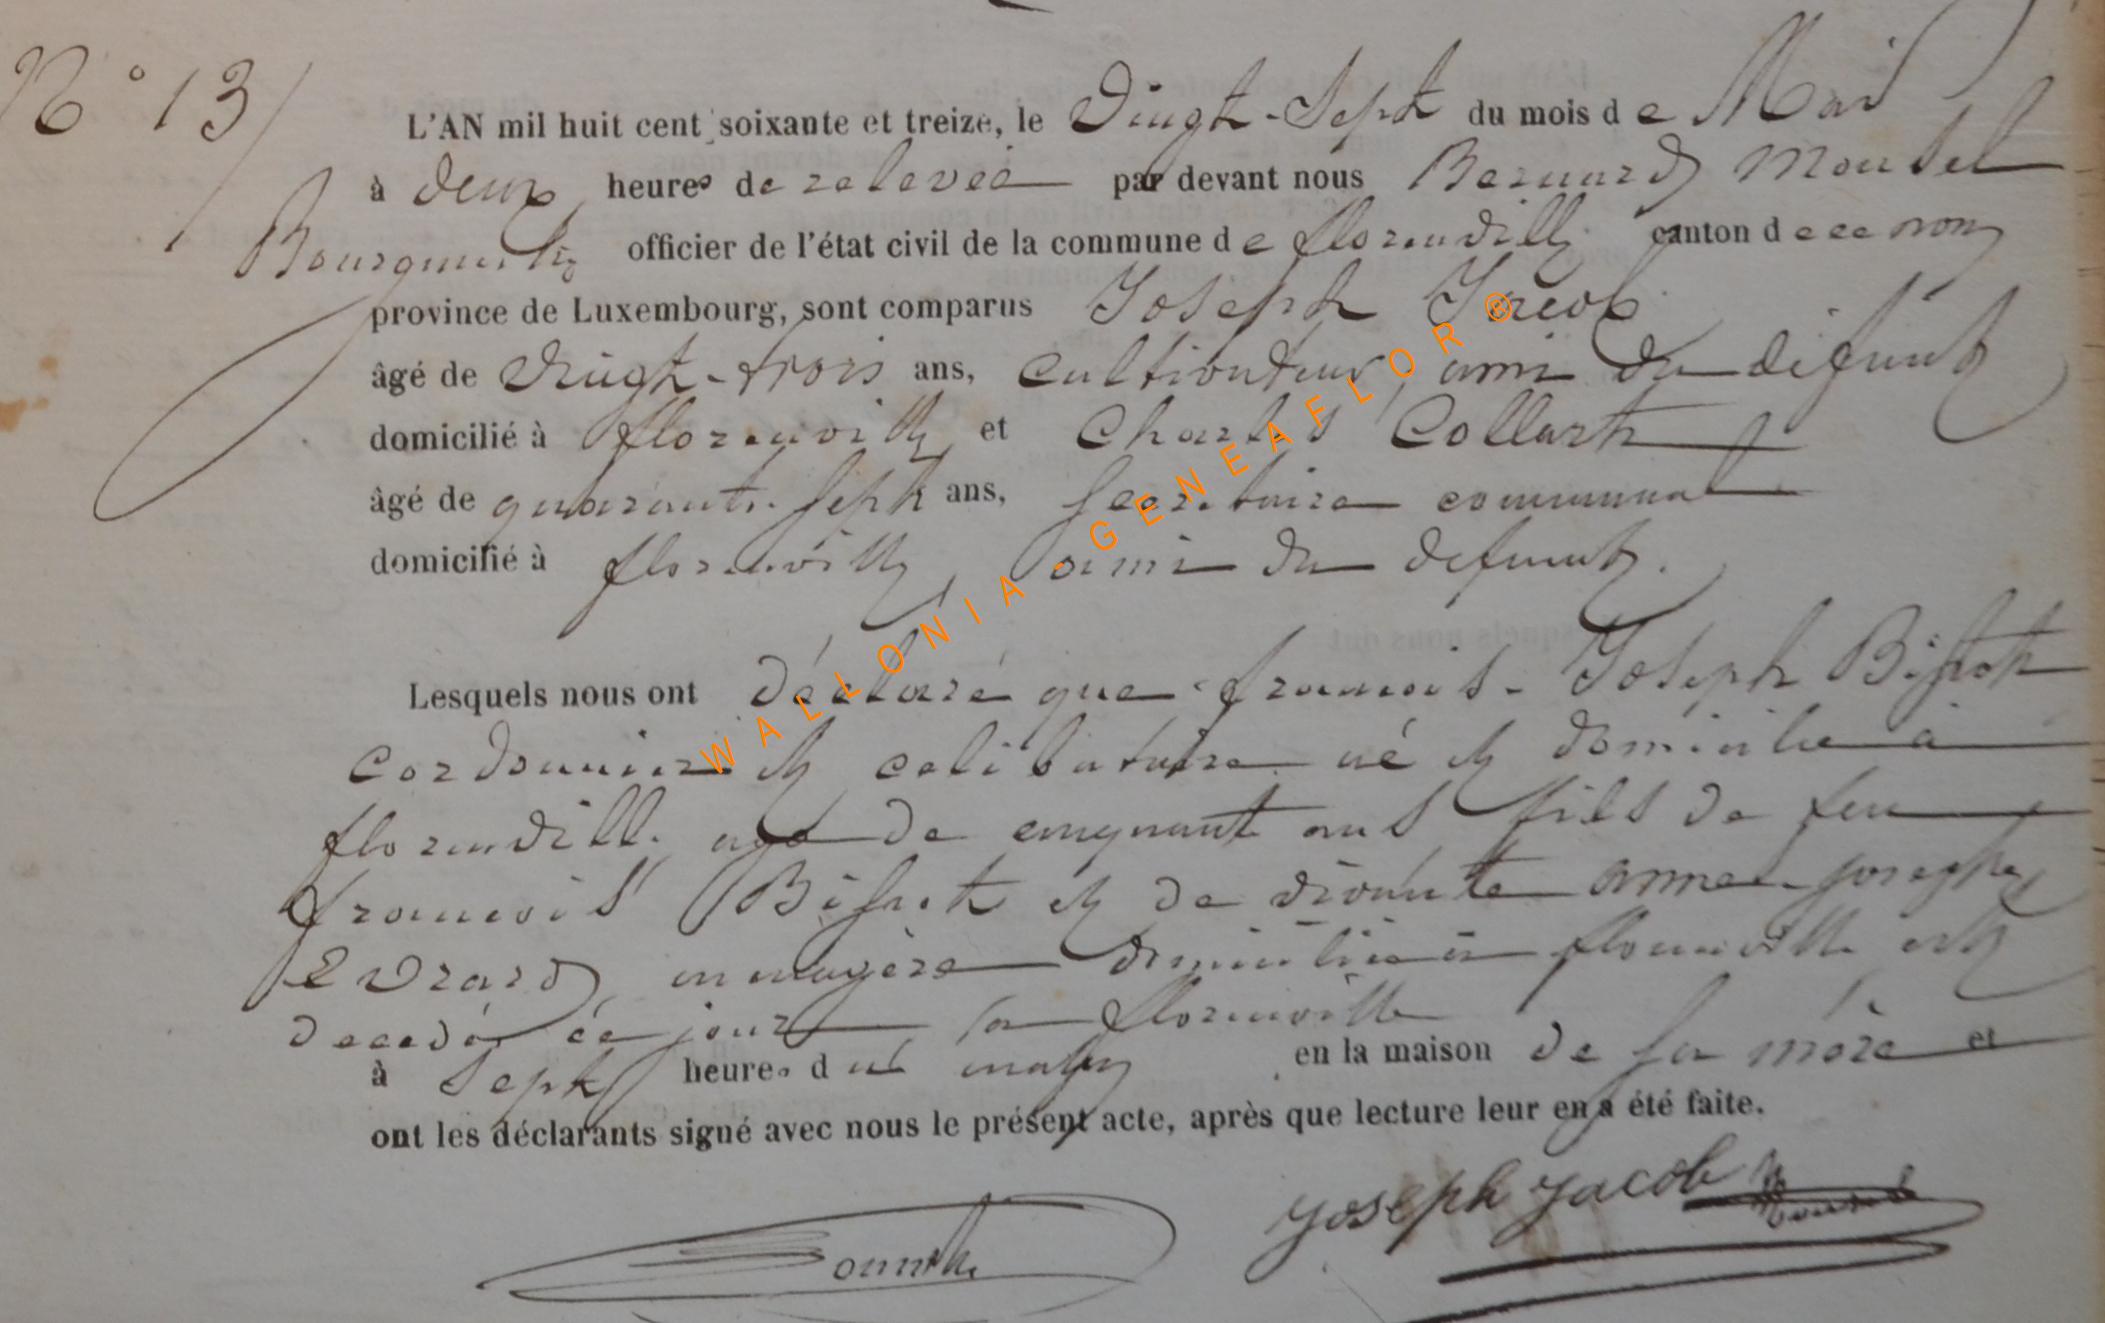 N° 13
L'AN mil huit cent soixante et treize, le Vingt-Sept du mois de Mai
à deux heures de relevée par devant nous Bernard Moutel
Bourgmestre officier de l'état civil de la commune de florenville canton de ce nom
province de Luxembourg, sont comparus Joseph Jacob
âgé de Vingt-trois ans, cultivateur, ami du défunt
domicilié à florenville et Charles Collart
âgé de quarante-sept ans, Secrétaire communal
domicilié à florenville, ami du defunt.
Lesquels nous ont déclaré que francois-Joseph Bissot
cordonnier et celibataire né et domicilié à
florenville agé de cinquante ans fils de feu
francois Bissot et de vivante anne josephe
Evrard menagère domiciliée à florenville est
decedé ce jour à florenville
à Sept heures du matin en la maison de sa mère et
ont les déclarants signé avec nous le présent acte, après que lecture leur en a été faite.
joseph jacob
WALLONIA - GENEAFLOR ®